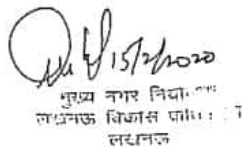 15/2/2020
मुख्य नगर नियो
लखनऊ विकास प्रा
लखनऊ